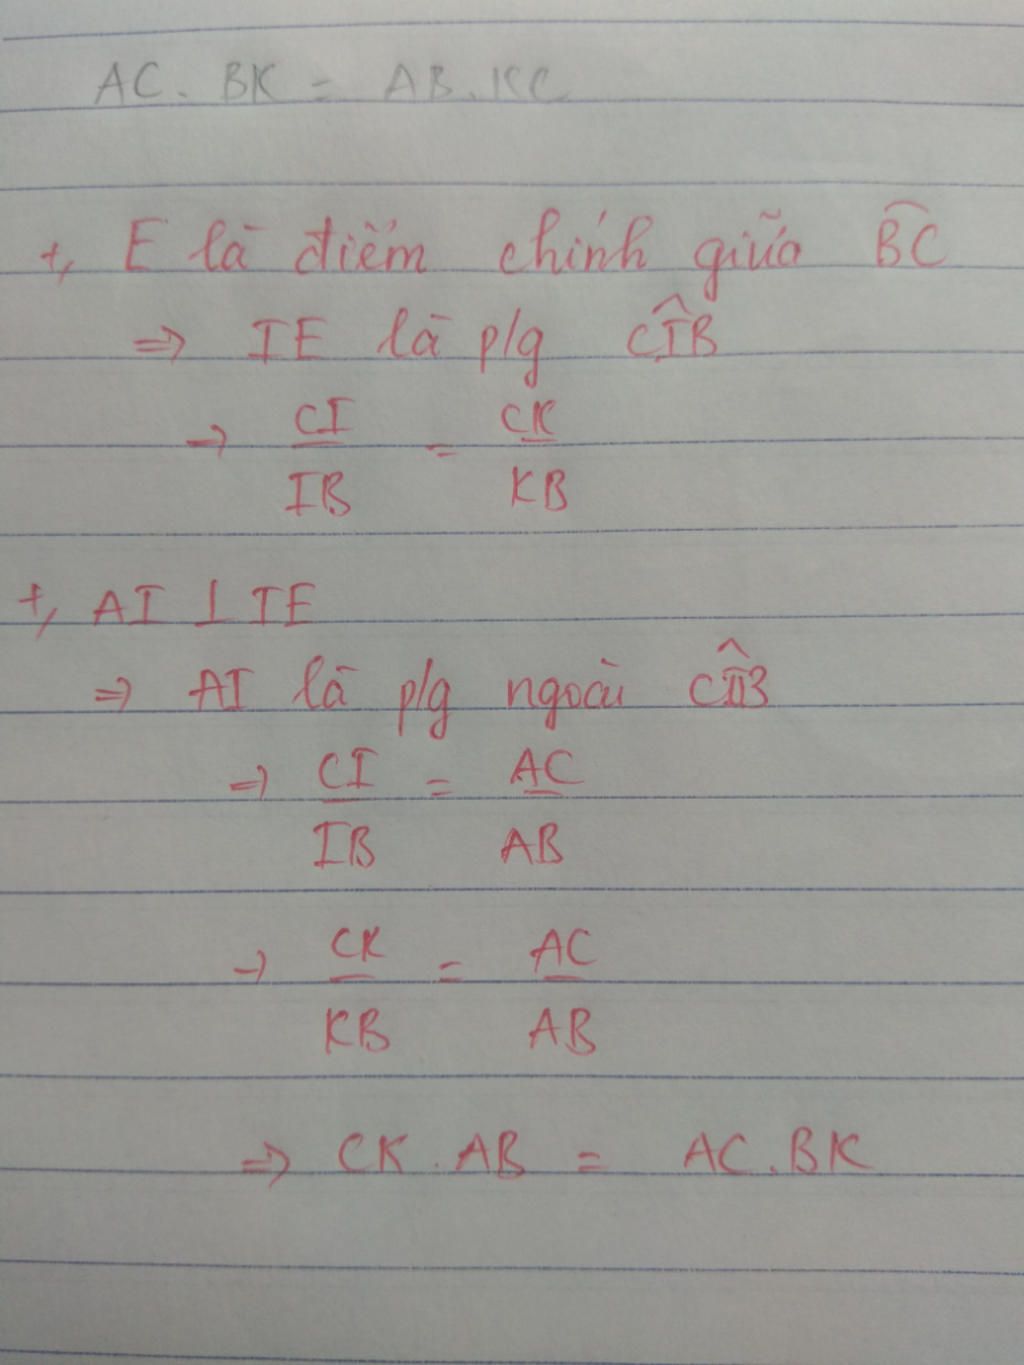 AC . BK = AB . KC
+, E là điểm chính giữa \overset{\frown}{BC}
=> IE là p/g \widehat{CIB}
=> \frac{CI}{IB} = \frac{CK}{KB}
+, AI ⊥ IE
=> AI là p/g ngoài \widehat{CIB}
=> \frac{CI}{IB} = \frac{AC}{AB}
=> \frac{CK}{KB} = \frac{AC}{AB}
=> CK . AB = AC . BK